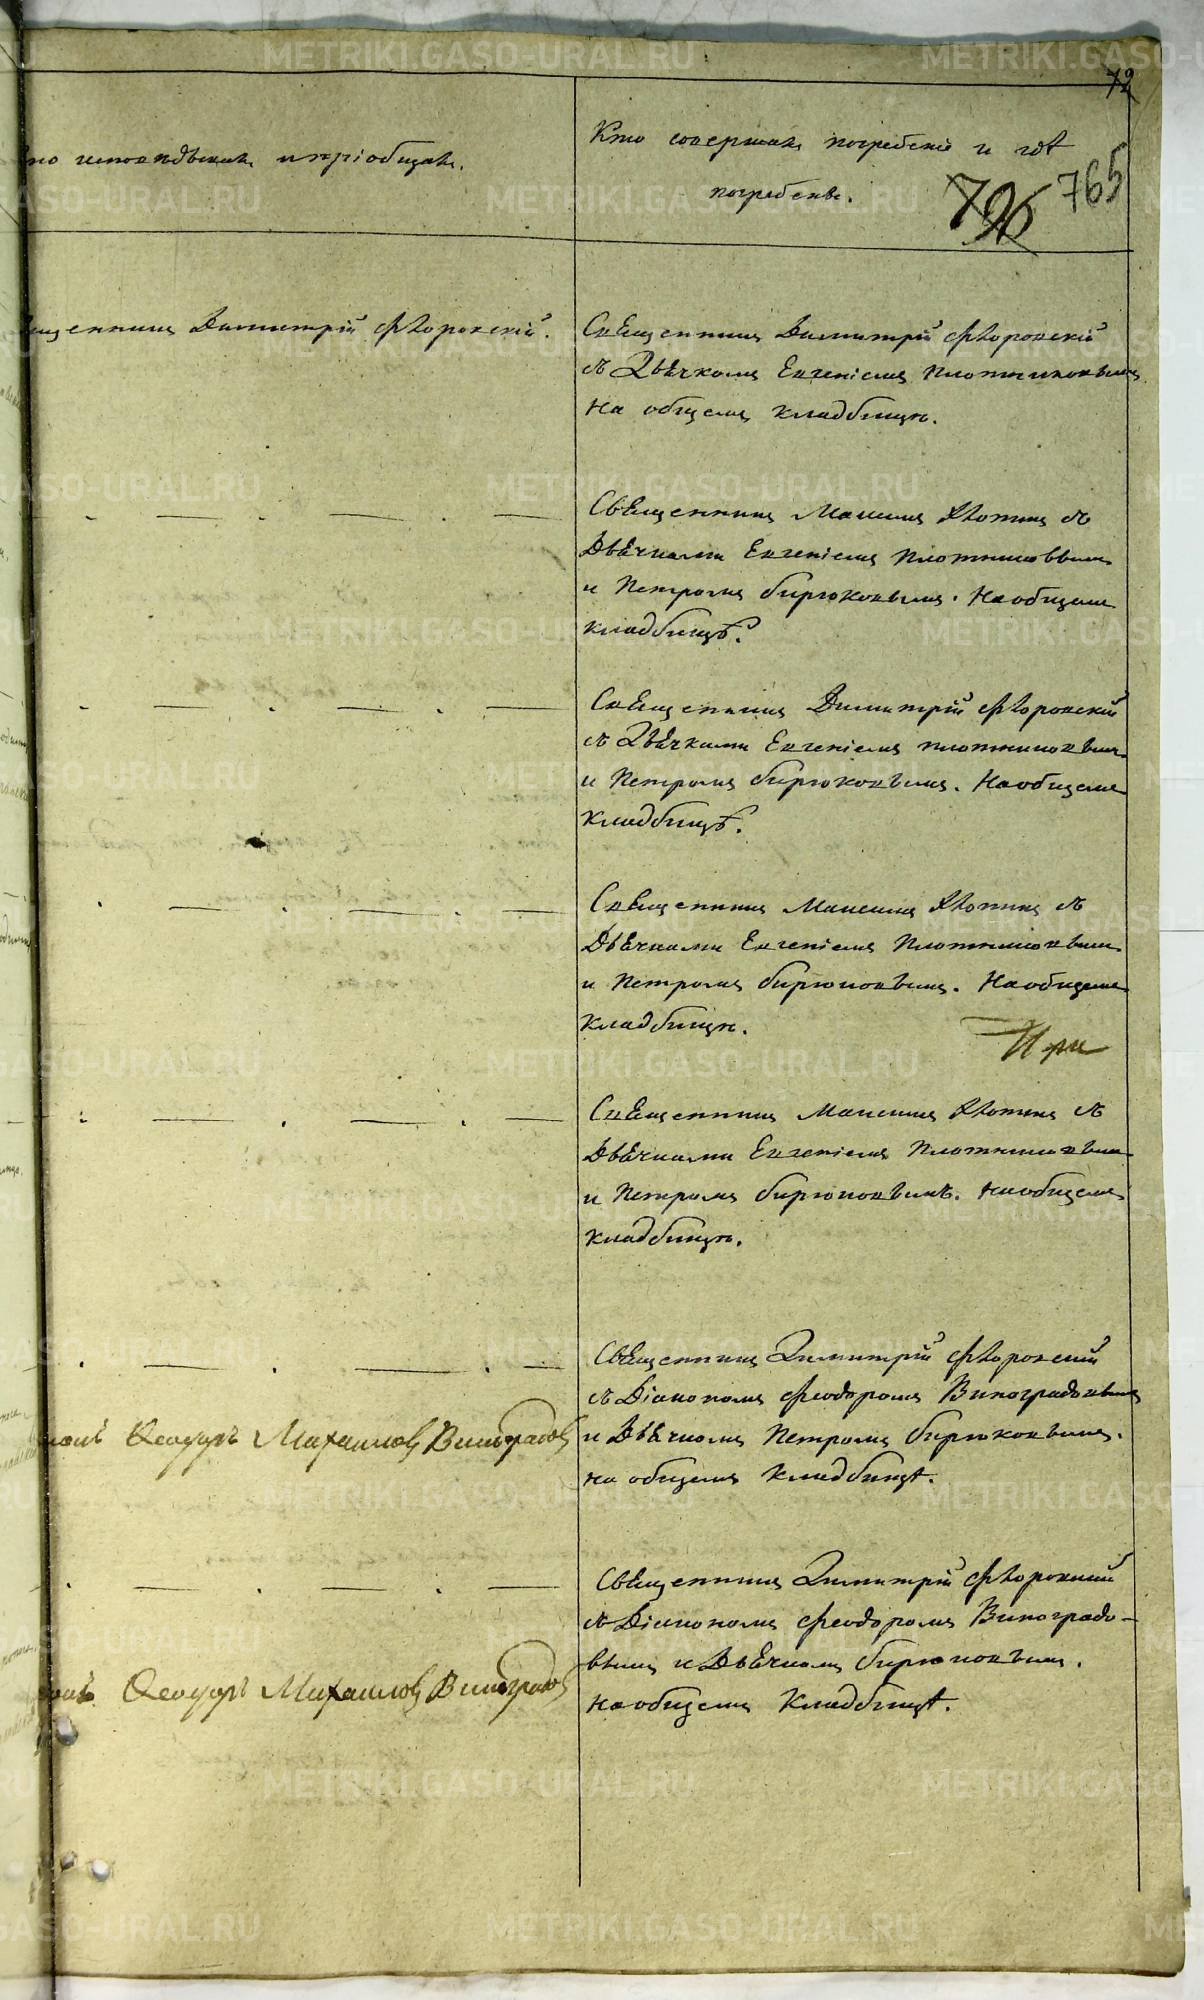 72
Кто исповѣдывалъ и пріобщалъ.
Кто совершалъ погребеніе и гдѣ
погребенъ.
796 765
Священникъ Димитрій Флоровскій.
Священникъ Димитрій Флоровскій
съ Дьячкомъ Евгеніемъ Плотниковымъ
На общемъ кладбищѣ.
Священникъ Максимъ
съ
Дьячками Евгеніемъ Плотниковымъ
и Петромъ Бирюковымъ. На общемъ
кладбищѣ.
Священникъ Димитрій Флоровскій
съ Дьячками Евгеніемъ Плотниковымъ
и Петромъ Бирюковымъ. На общемъ
кладбищѣ.
Священникъ Максимъ
съ
Дьячками Евгеніемъ Плотниковымъ
и Петромъ Бирюковымъ. На общемъ
кладбищѣ.
При
Священникъ Максимъ
съ
Дьячками Евгеніемъ Плотниковымъ
и Петромъ Бирюковымъ. На общемъ
кладбищѣ.
Священникъ Димитрій Флоровскій
съ Діакономъ Феодоромъ Виноградовымъ
Ѳеодоръ Михайловъ Виноградовъ
и Дьячкомъ Петромъ Бирюковымъ.
на общемъ Кладбищѣ.
Священникъ Димитрій Флоровскій
съ Діакономъ Феодоромъ Виноградо-
вымъ и Дьячкомъ Бирюковымъ.
Ѳеодоръ Михайловъ Виноградовъ
На общемъ Кладбищѣ.
METRIKI.GASO-URAL.RU